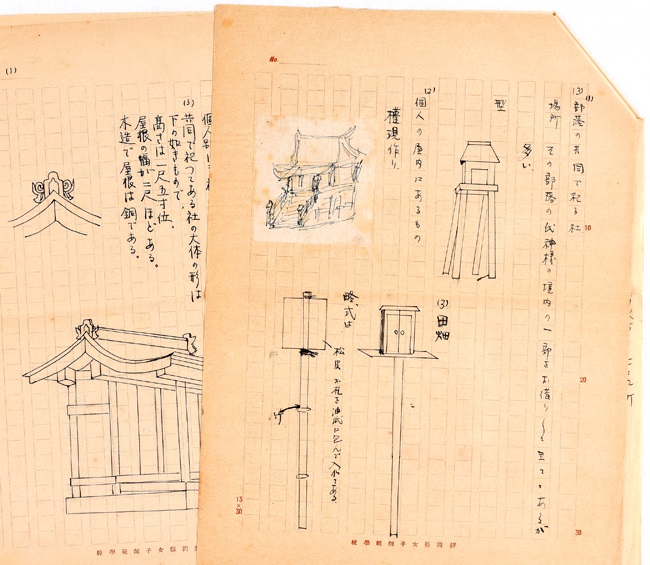 No.
(1)
(3) 部落の共同で祀る社
場所 その部落の氏神様の境内の一部をお借りして立てゝあるが
多い
型
(2)
個人の屋内にあるもの
権現作り
(3) 田畑
略式は
お札を油紙に包んで入れてある
竹
10
20
30
15×30
校學範師子女縣岡靜
(1)
(3)
個人別に
共同で祀つてある社の大体の形は
下の如きもので、
高さは一尺五寸位、
屋根の幅が二尺ほどある。
木造で屋根は銅である。
校學範師子女縣岡